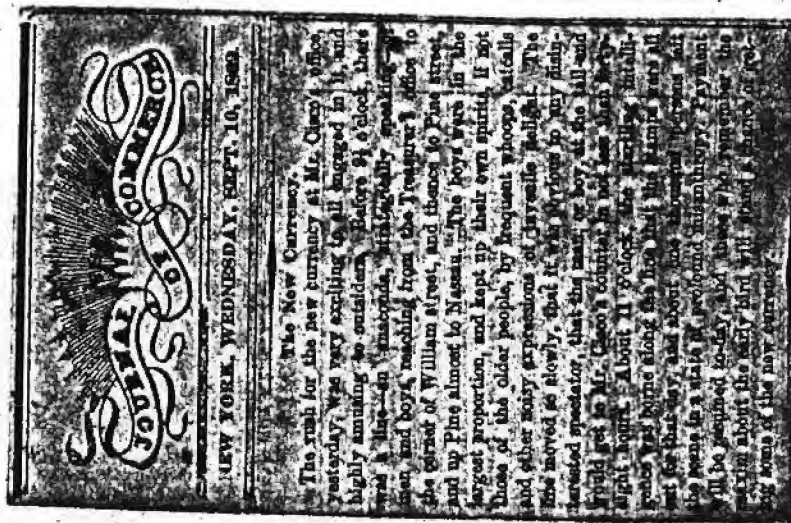 JOURNAL OF COMMERCE
NEW YORK, WEDNESDAY, SEPT. 10, 1862
The New Currency
The rush for the new currency at Mr. Cisco's office,
yesterday, was very exciting to all engaged in it, and
highly amusing to outsiders. Before 9½ o'clock, there
was a line—an anaconda, speaking—of
men and boys, reaching from the Treasurer's office to
the corner of William street, and thence to Pine street,
and up Pine almost to Nassau. The boys were in the
largest proportion, and kept up their own spirits, if not
those of the older people, by frequent whoops, catcalls
and other noisy expressions of juvenile delight. The
line moved so slowly, that it was obvious to any disin-
terested spectator, that the man or boy at the tail end
would get to Mr. Cisco's counter in not less than forty-
eight hours. About 11 o'clock the startling intelli-
gence was borne along the line that the stamps were all
out for that day, and about one thousand persons left
the scene in a state of profound misanthropy. Payment
will be resumed to-day, and those who remember the
maxim about the early bird will stand a chance of get-
ting some of the new currency.